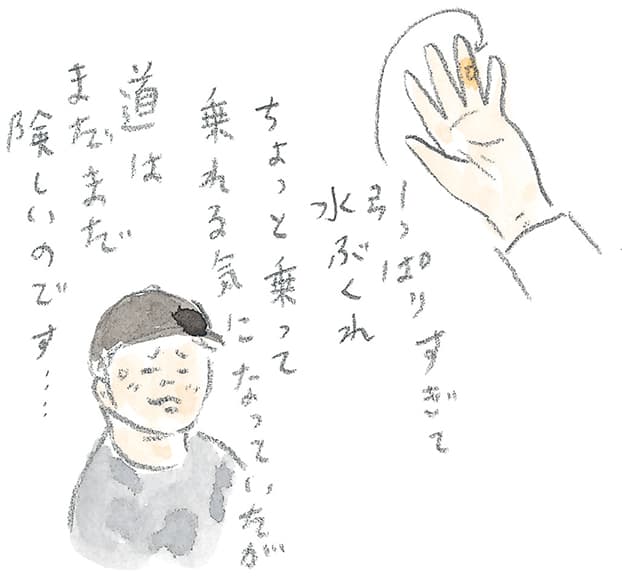 引っぱりすぎて
水ぶくれ
ちょっと乗って
乗れる気になっていたが
道は
まだまだ
険しいのです…